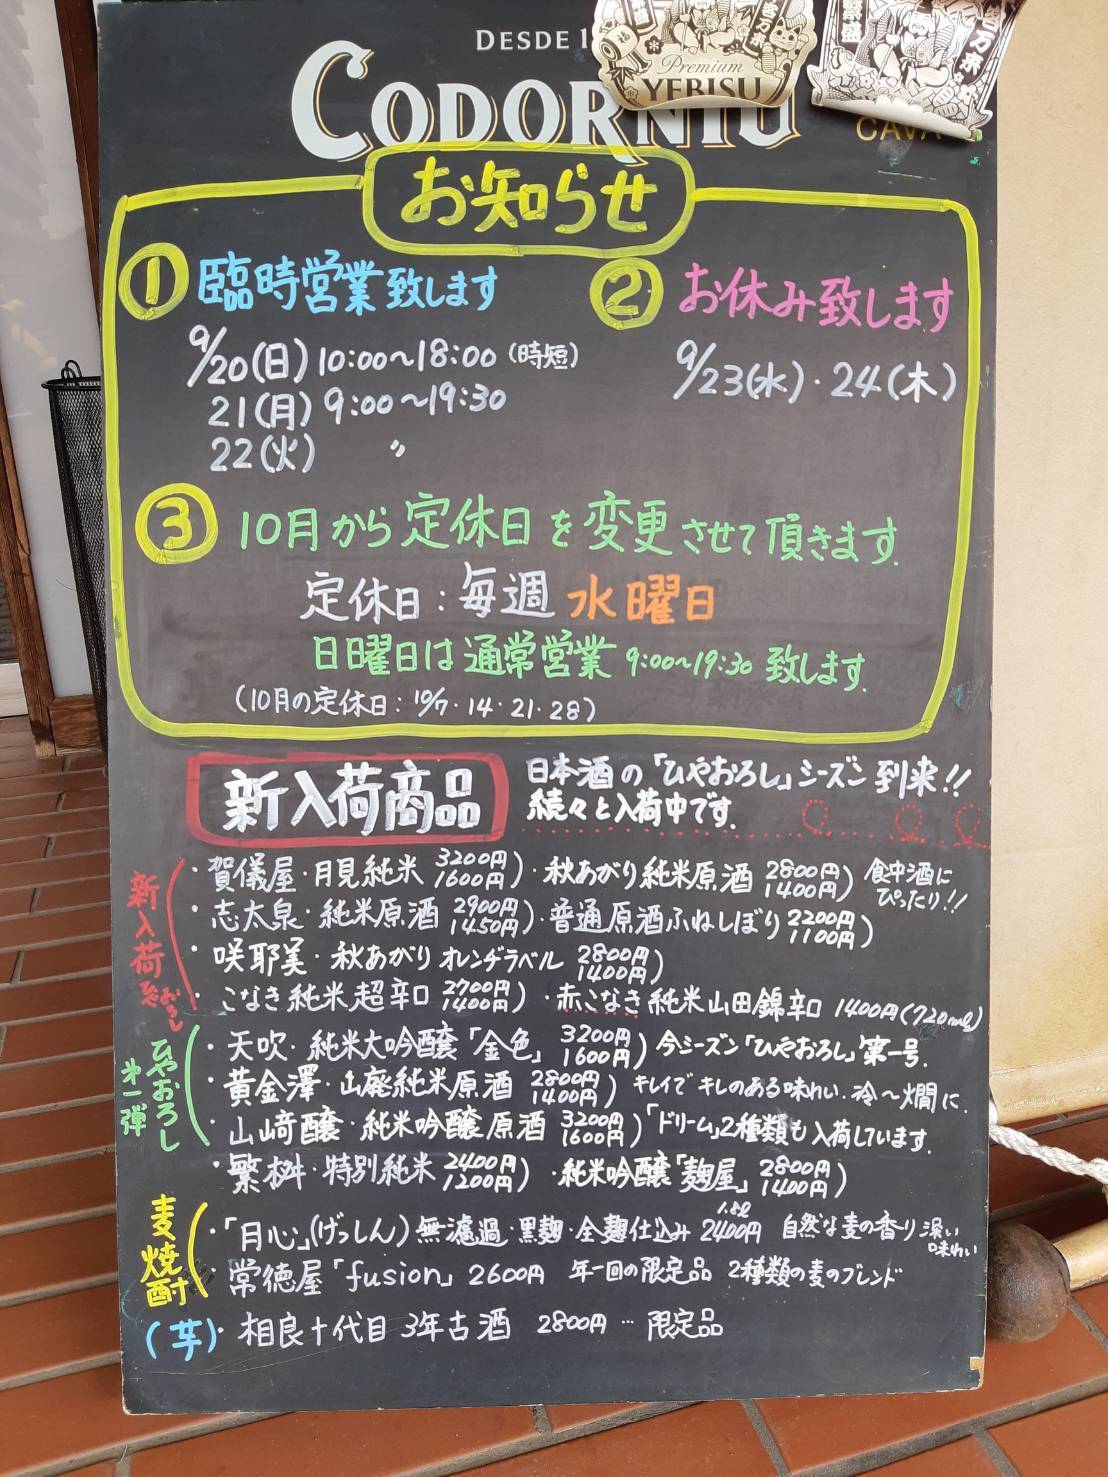 DESDE 1
CODORNIU
Premium
YEBISU
CAVA
お知らせ
① 臨時営業致します
9/20(日) 10:00〜18:00 (時短)
21(月) 9:00〜19:30
22(火) 〃
② お休み致します
9/23(水)・24(木)
③ 10月から定休日を変更させて頂きます.
定休日:毎週 水曜日
日曜日は通常営業 9:00〜19:30 致します.
(10月の定休日:10/7・14・21・28)
新入荷商品
日本酒の「ひやおろし」シーズン到来!!
続々と入荷中です.
新入荷ひやおろし
・賀儀屋・月見純米 3200円 1600円)・秋あがり純米原酒 2800円 1400円) 食中酒にぴったり!!
・志太泉・純米原酒 2900円 1450円)・普通原酒ふねしぼり 2200円 1100円)
・咲耶美・秋あがり オレンヂラベル 2800円 1400円)
・こなき純米超辛口 2700円 1400円)・赤こなき純米山田錦辛口 1400円(720ml)
ひやおろし
オ一弾
・天吹・純米大吟醸「金色」 3200円 1600円) 今シーズン「ひやおろし」第一号.
・黄金澤・山廃純米原酒 2800円 1400円) キレイで キレのある味わい. 冷〜燗に.
・山﨑醸・純米吟醸原酒 3200円 1600円)「ドリーム」2種類も入荷しています.
・繁桝・特別純米 2400円 1200円)・純米吟醸「麹屋」 2800円 1400円)
麦焼酎
・「月心」(げっしん) 無濾過・黒麹・全麹仕込み 1.8ℓ 2400円 自然な麦の香り 深い味わい
・常徳屋「fusion」 2600円 年一回の限定品 2種類の麦のブレンド
(芋)・相良十代目 3年古酒 2800円 … 限定品